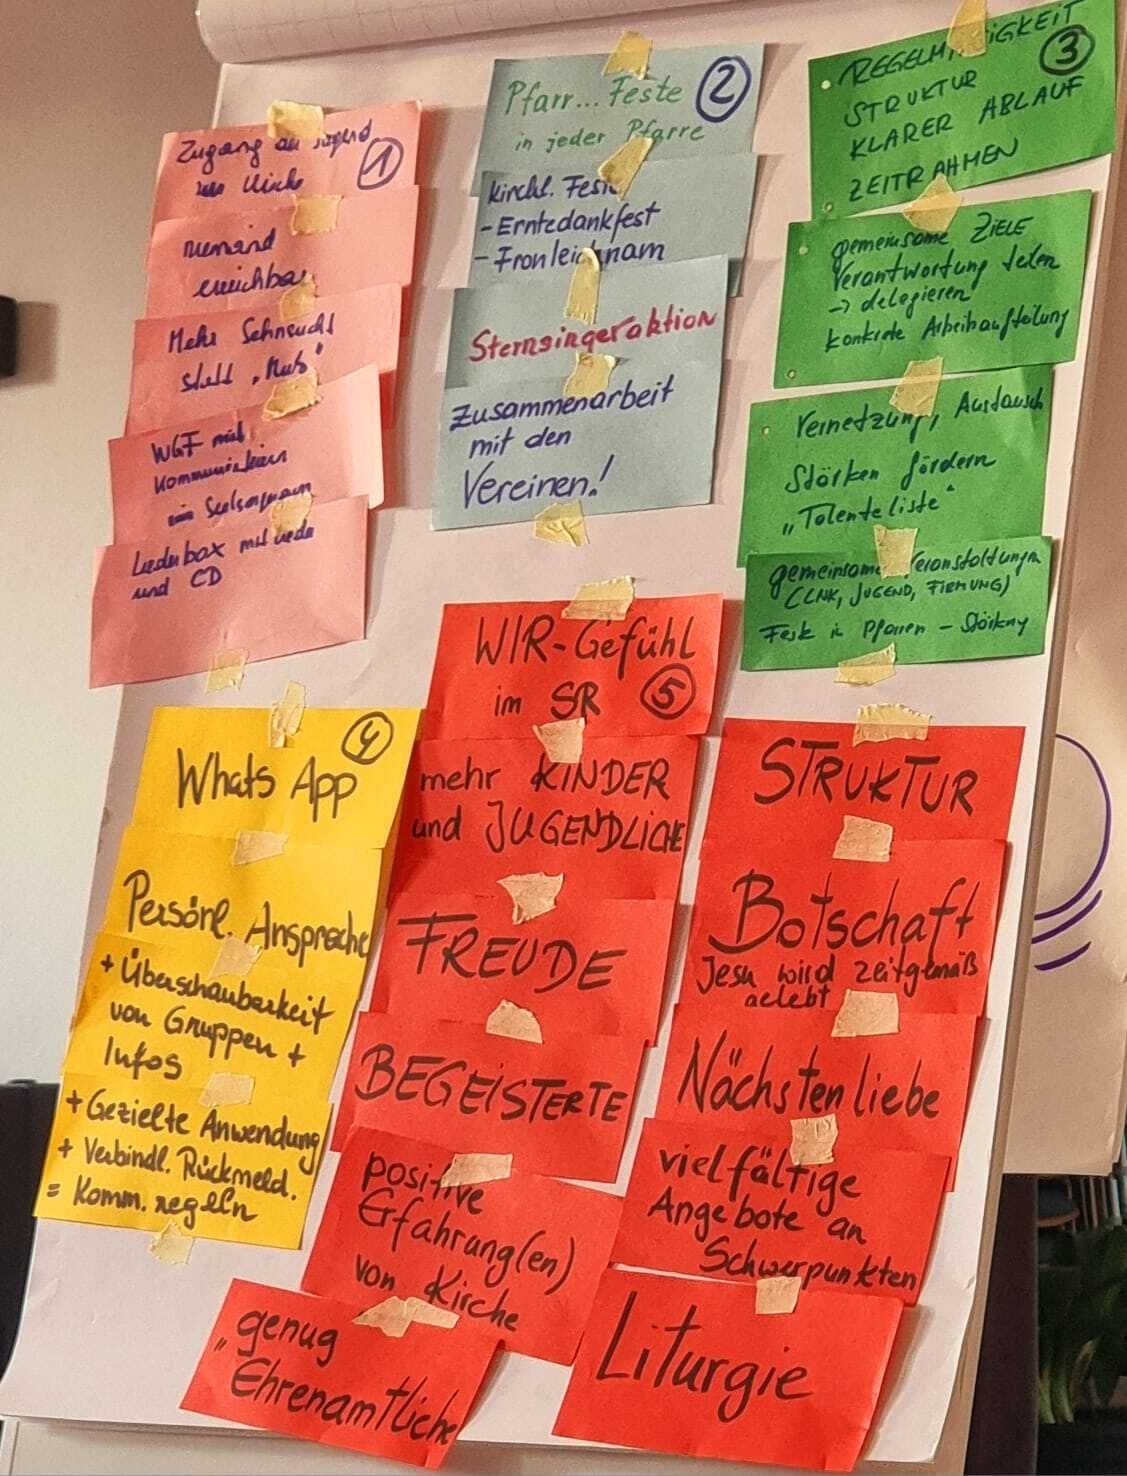 Zugang zu Jugend
1
zur Kirche
niemand
erreichbar
Mehr Sehnsucht
statt "Muß"
WGF mit
kommunizieren
Liederbox mit Lieder
und CD
Pfarr... Feste
2
in jeder Pfarre
kirchl. Feste
- Erntedankfest
- Fronleichnam
Sternsingeraktion
Zusammenarbeit
mit den
Vereinen!
REGELMÄßIGKEIT
3
STRUKTUR
KLARER ABLAUF
ZEITRAHMEN
gemeinsame ZIELE
Verantwortung teilen
→ delegieren
konkrete Arbeitsaufteilung
Vernetzung, Austausch
Stärken fördern
„Talenteliste"
gemeinsame Veranstaltungen
(LNK, JUGEND, FIRMUNG)
Feste in Pfarren - Stärkung
WhatsApp
4
Persönl. Ansprache
+ Überschaubarkeit
von Gruppen +
Infos
+ Gezielte Anwendung
+ Verbindl. Rückmeld.
= Komm. regeln
WIR-Gefühl
im SR
5
mehr KINDER
und JUGENDLICHE
FREUDE
BEGEISTERTE
positive
Erfahrung(en)
von Kirche
genug
"Ehrenamtliche
STRUKTUR
Botschaft
Jesu wird zeitgemäß
gelebt
Nächstenliebe
vielfältige
Angebote an
Schwerpunkten
Liturgie